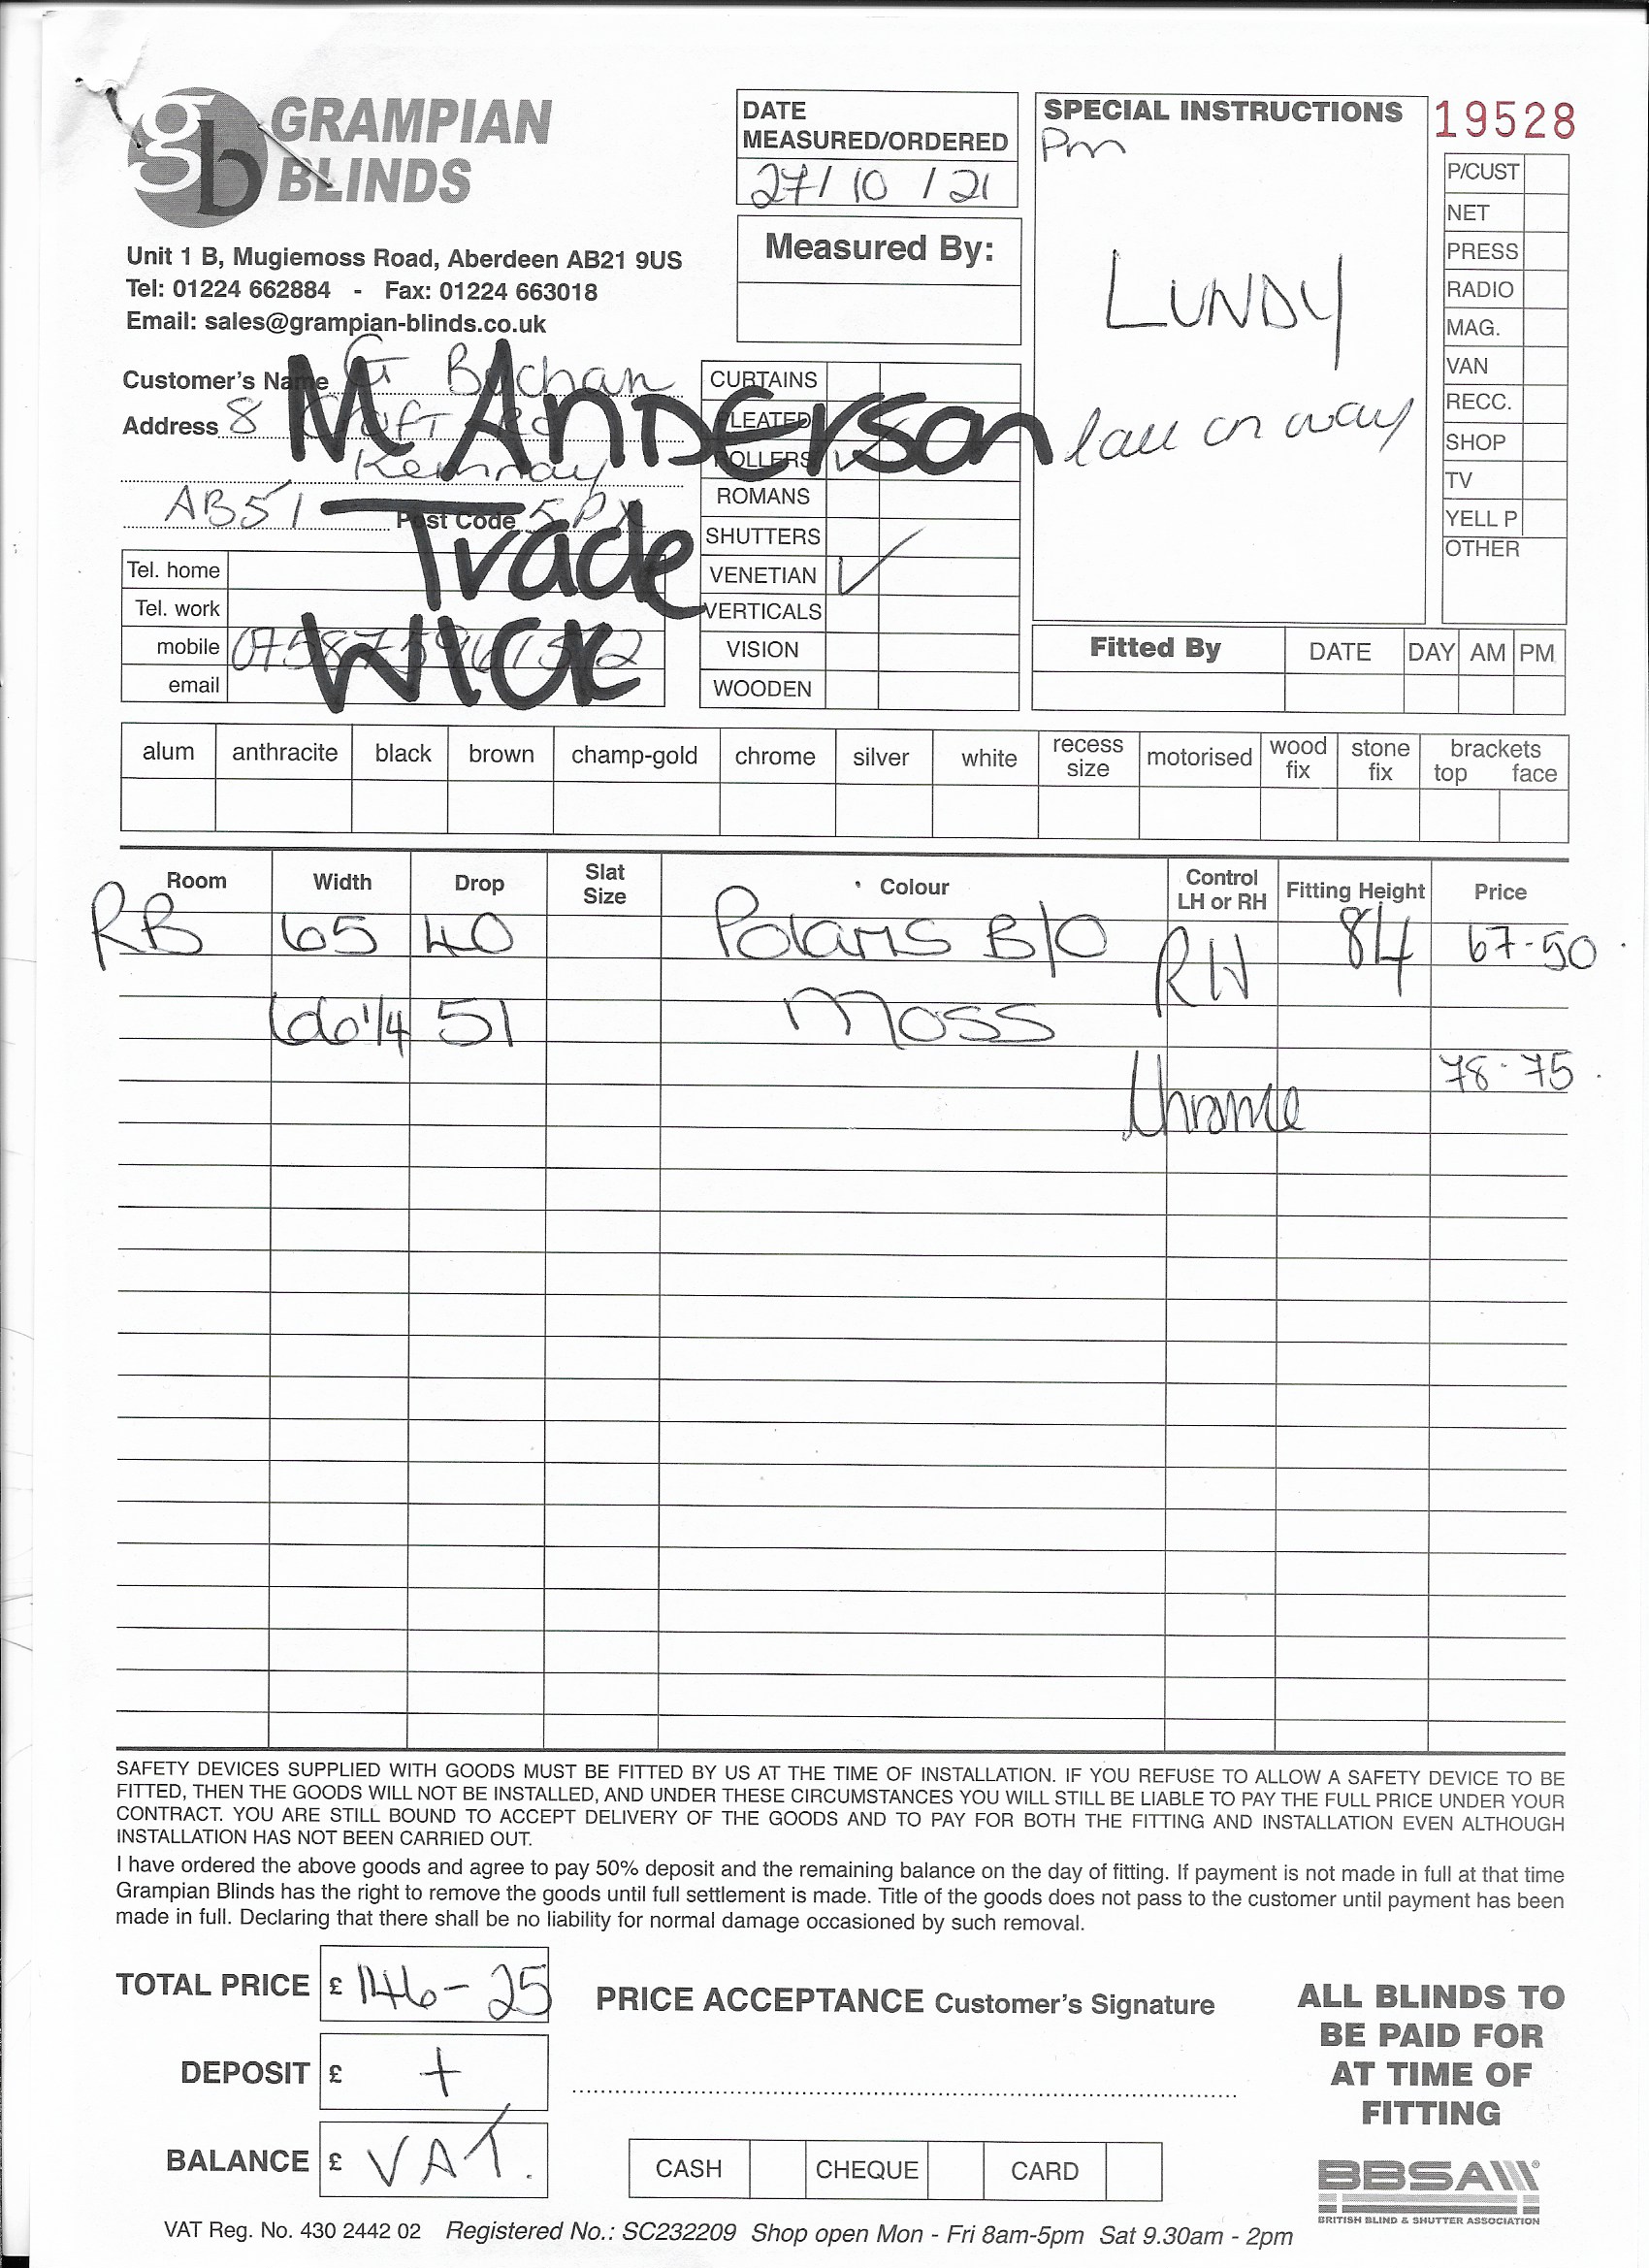 gb GRAMPIAN
BLINDS
Unit 1 B, Mugiemoss Road, Aberdeen AB21 9US
Tel: 01224 662884 - Fax: 01224 663018
Email: sales@grampian-blinds.co.uk
DATE
MEASURED/ORDERED
27/10/21
Measured By:
SPECIAL INSTRUCTIONS
Pm
LUNDY
on way
19528
P/CUST
NET
PRESS
RADIO
MAG.
VAN
RECC.
SHOP
TV
YELL P
OTHER
Customer's Name G
Address 8
Kemnay
AB51 Post Code
M ANDERSON
Trade
WICK
Tel. home
Tel. work
mobile
email
CURTAINS
PLEATED
ROLLERS ✓
ROMANS
SHUTTERS
VENETIAN ✓
VERTICALS
VISION
WOODEN
Fitted By DATE DAY AM PM
alum anthracite black brown champ-gold chrome silver white recess size motorised wood fix stone fix brackets top face
Room Width Drop Slat Size Colour Control LH or RH Fitting Height Price
RB 65 40 Polaris B/O RH 84 67-50
66 1/4 51 Moss
78-75
Chrome
SAFETY DEVICES SUPPLIED WITH GOODS MUST BE FITTED BY US AT THE TIME OF INSTALLATION. IF YOU REFUSE TO ALLOW A SAFETY DEVICE TO BE
FITTED, THEN THE GOODS WILL NOT BE INSTALLED, AND UNDER THESE CIRCUMSTANCES YOU WILL STILL BE LIABLE TO PAY THE FULL PRICE UNDER YOUR
CONTRACT. YOU ARE STILL BOUND TO ACCEPT DELIVERY OF THE GOODS AND TO PAY FOR BOTH THE FITTING AND INSTALLATION EVEN ALTHOUGH
INSTALLATION HAS NOT BEEN CARRIED OUT.
I have ordered the above goods and agree to pay 50% deposit and the remaining balance on the day of fitting. If payment is not made in full at that time
Grampian Blinds has the right to remove the goods until full settlement is made. Title of the goods does not pass to the customer until payment has been
made in full. Declaring that there shall be no liability for normal damage occasioned by such removal.
TOTAL PRICE £ 146-25
DEPOSIT £ +
BALANCE £ VAT.
PRICE ACCEPTANCE Customer's Signature
CASH CHEQUE CARD
ALL BLINDS TO
BE PAID FOR
AT TIME OF
FITTING
BBSA
BRITISH BLIND & SHUTTER ASSOCIATION
VAT Reg. No. 430 2442 02 Registered No.: SC232209 Shop open Mon - Fri 8am-5pm Sat 9.30am - 2pm